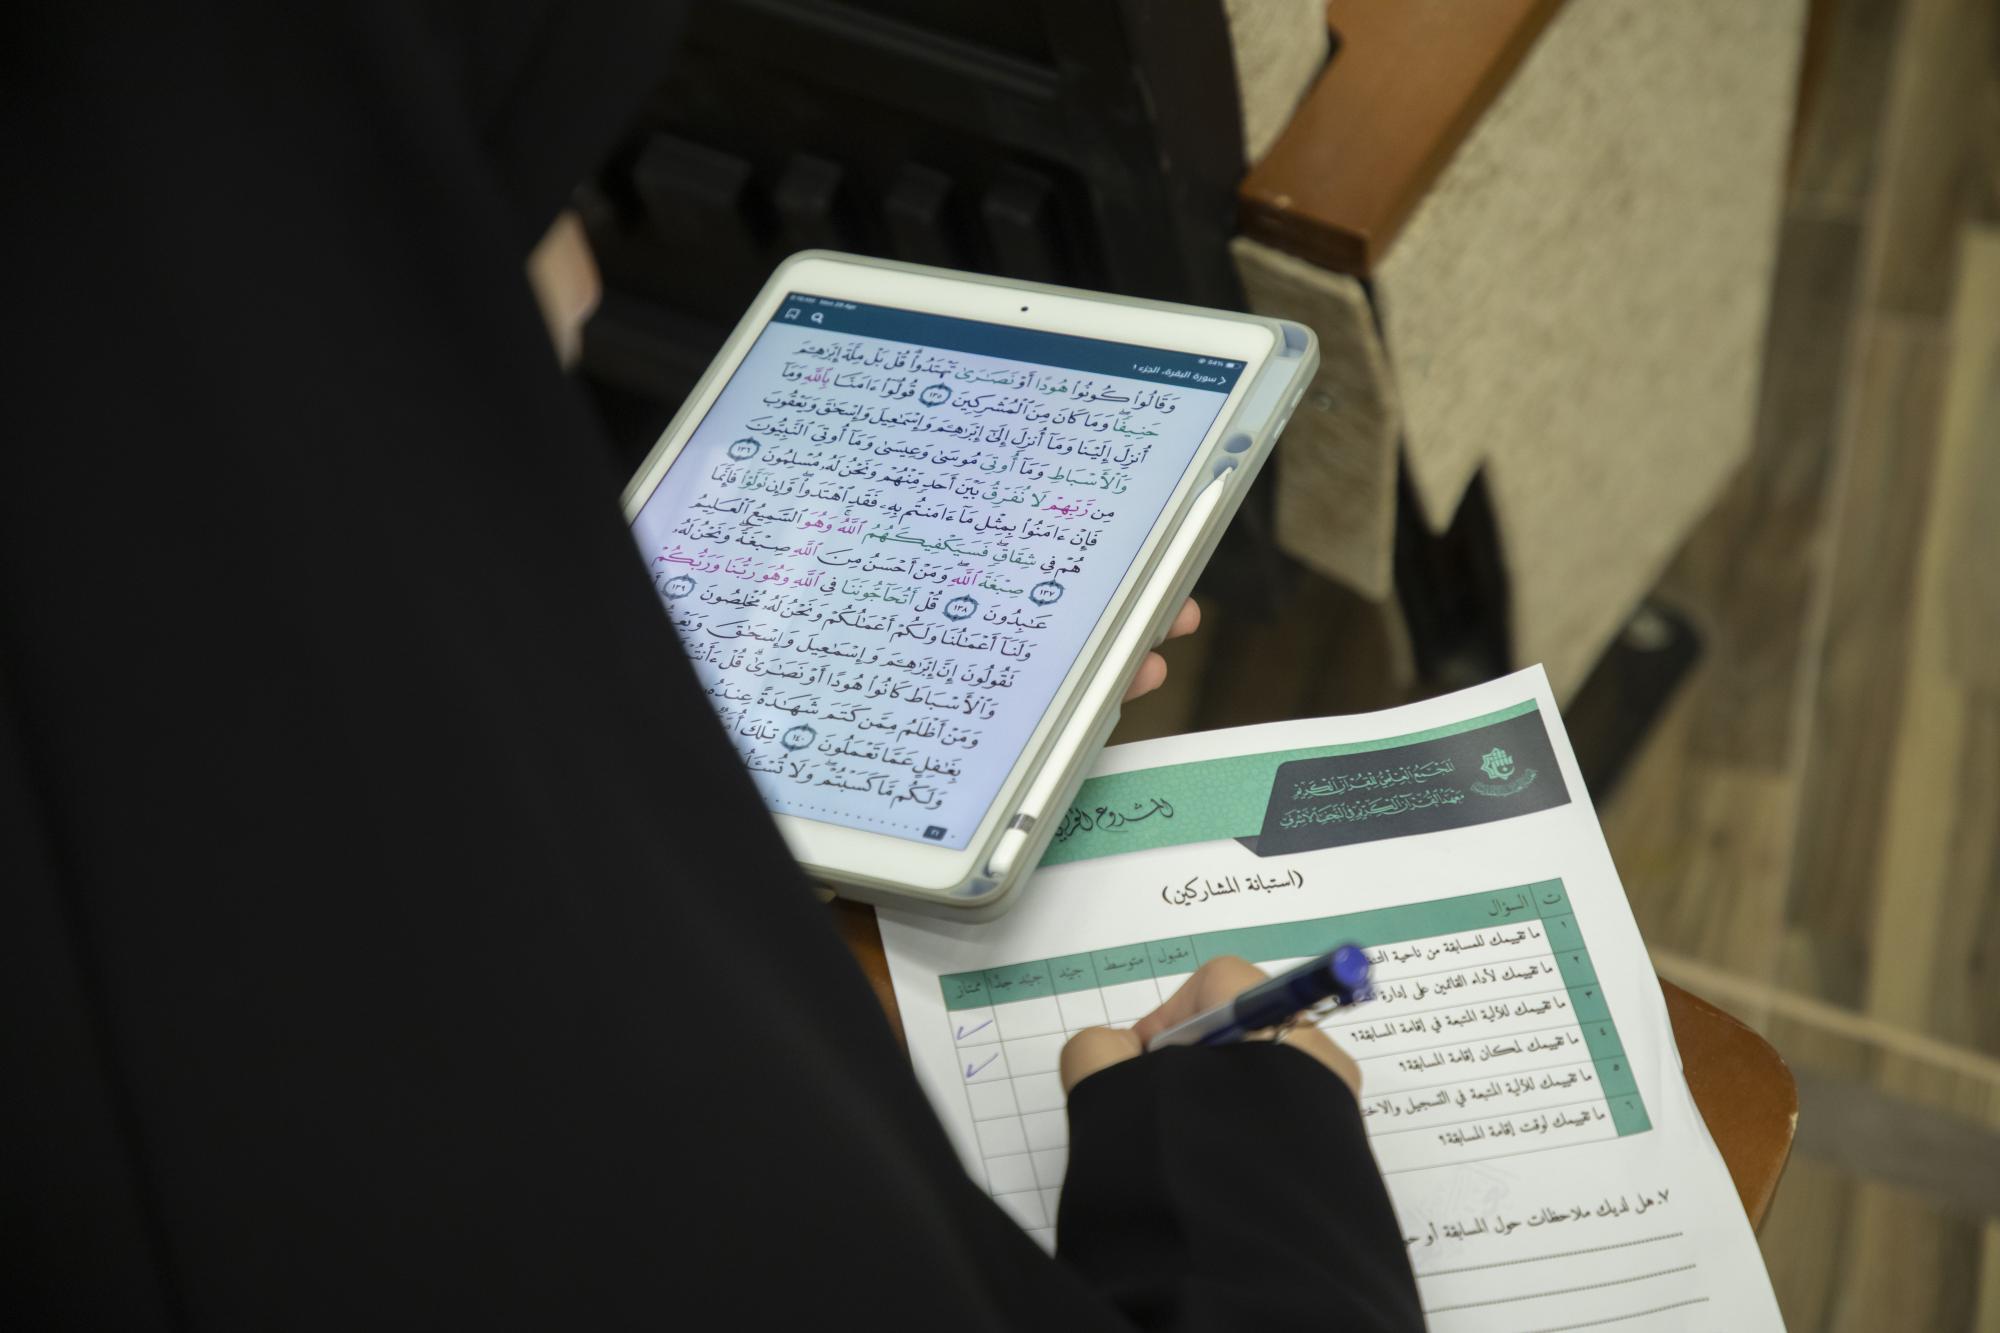 Mon 25 Apr
54%
سورة البقرة، الجزء ١
وَقَالُوا۟ كُونُوا۟ هُودًا أَوْ نَصَـٰرَىٰ تَهْتَدُوا۟ ۗ قُلْ بَلْ مِلَّةَ إِبْرَٰهِـۧمَ
حَنِيفًا ۖ وَمَا كَانَ مِنَ ٱلْمُشْرِكِينَ ١٣٥ قُولُوٓا۟ ءَامَنَّا بِٱللَّهِ وَمَآ
أُنزِلَ إِلَيْنَا وَمَآ أُنزِلَ إِلَىٰٓ إِبْرَٰهِـۧمَ وَإِسْمَـٰعِيلَ وَإِسْحَـٰقَ وَيَعْقُوبَ
وَٱلْأَسْبَاطِ وَمَآ أُوتِىَ مُوسَىٰ وَعِيسَىٰ وَمَآ أُوتِىَ ٱلنَّبِيُّونَ
مِن رَّبِّهِمْ لَا نُفَرِّقُ بَيْنَ أَحَدٍ مِّنْهُمْ وَنَحْنُ لَهُۥ مُسْلِمُونَ ١٣٦
فَإِنْ ءَامَنُوا۟ بِمِثْلِ مَآ ءَامَنتُم بِهِۦ فَقَدِ ٱهْتَدَوا۟ ۖ وَّإِن تَوَلَّوْا۟ فَإِنَّمَا
هُمْ فِى شِقَاقٍ ۖ فَسَيَكْفِيكَهُمُ ٱللَّهُ ۚ وَهُوَ ٱلسَّمِيعُ ٱلْعَلِيمُ
١٣٧ صِبْغَةَ ٱللَّهِ ۖ وَمَنْ أَحْسَنُ مِنَ ٱللَّهِ صِبْغَةً ۖ وَنَحْنُ لَهُۥ
عَـٰبِدُونَ ١٣٨ قُلْ أَتُحَآجُّونَنَا فِى ٱللَّهِ وَهُوَ رَبُّنَا وَرَبُّكُمْ
وَلَنَآ أَعْمَـٰلُنَا وَلَكُمْ أَعْمَـٰلُكُمْ وَنَحْنُ لَهُۥ مُخْلِصُونَ ١٣٩
تَقُولُونَ إِنَّ إِبْرَٰهِـۧمَ وَإِسْمَـٰعِيلَ وَإِسْحَـٰقَ
وَٱلْأَسْبَاطَ كَانُوا۟ هُودًا أَوْ نَصَـٰرَىٰ ۗ قُلْ ءَأَنتُمْ
وَمَنْ أَظْلَمُ مِمَّن كَتَمَ شَهَـٰدَةً عِندَهُۥ
بِغَـٰفِلٍ عَمَّا تَعْمَلُونَ ١٤٠ تِلْكَ
وَلَكُم مَّا كَسَبْتُمْ ۖ وَلَا
٢١
المجمع العلمي للقرآن الكريم
معهد القرآن الكريم في النجف الأشرف
المشروع
(استبانة المشاركين)
ت السؤال مقبول متوسط جيّد جيّد جدًا ممتاز
١ ما تقييمك للمسابقة من ناحية
٢ ما تقييمك لأداء القائمين على إدارة
٣ ما تقييمك للآلية المتبعة في إقامة المسابقة؟
٤ ما تقييمك لمكان إقامة المسابقة؟
٥ ما تقييمك للآلية المتبعة في التسجيل
٦ ما تقييمك لوقت إقامة المسابقة؟
٧. هل لديك ملاحظات حول المسابقة أو